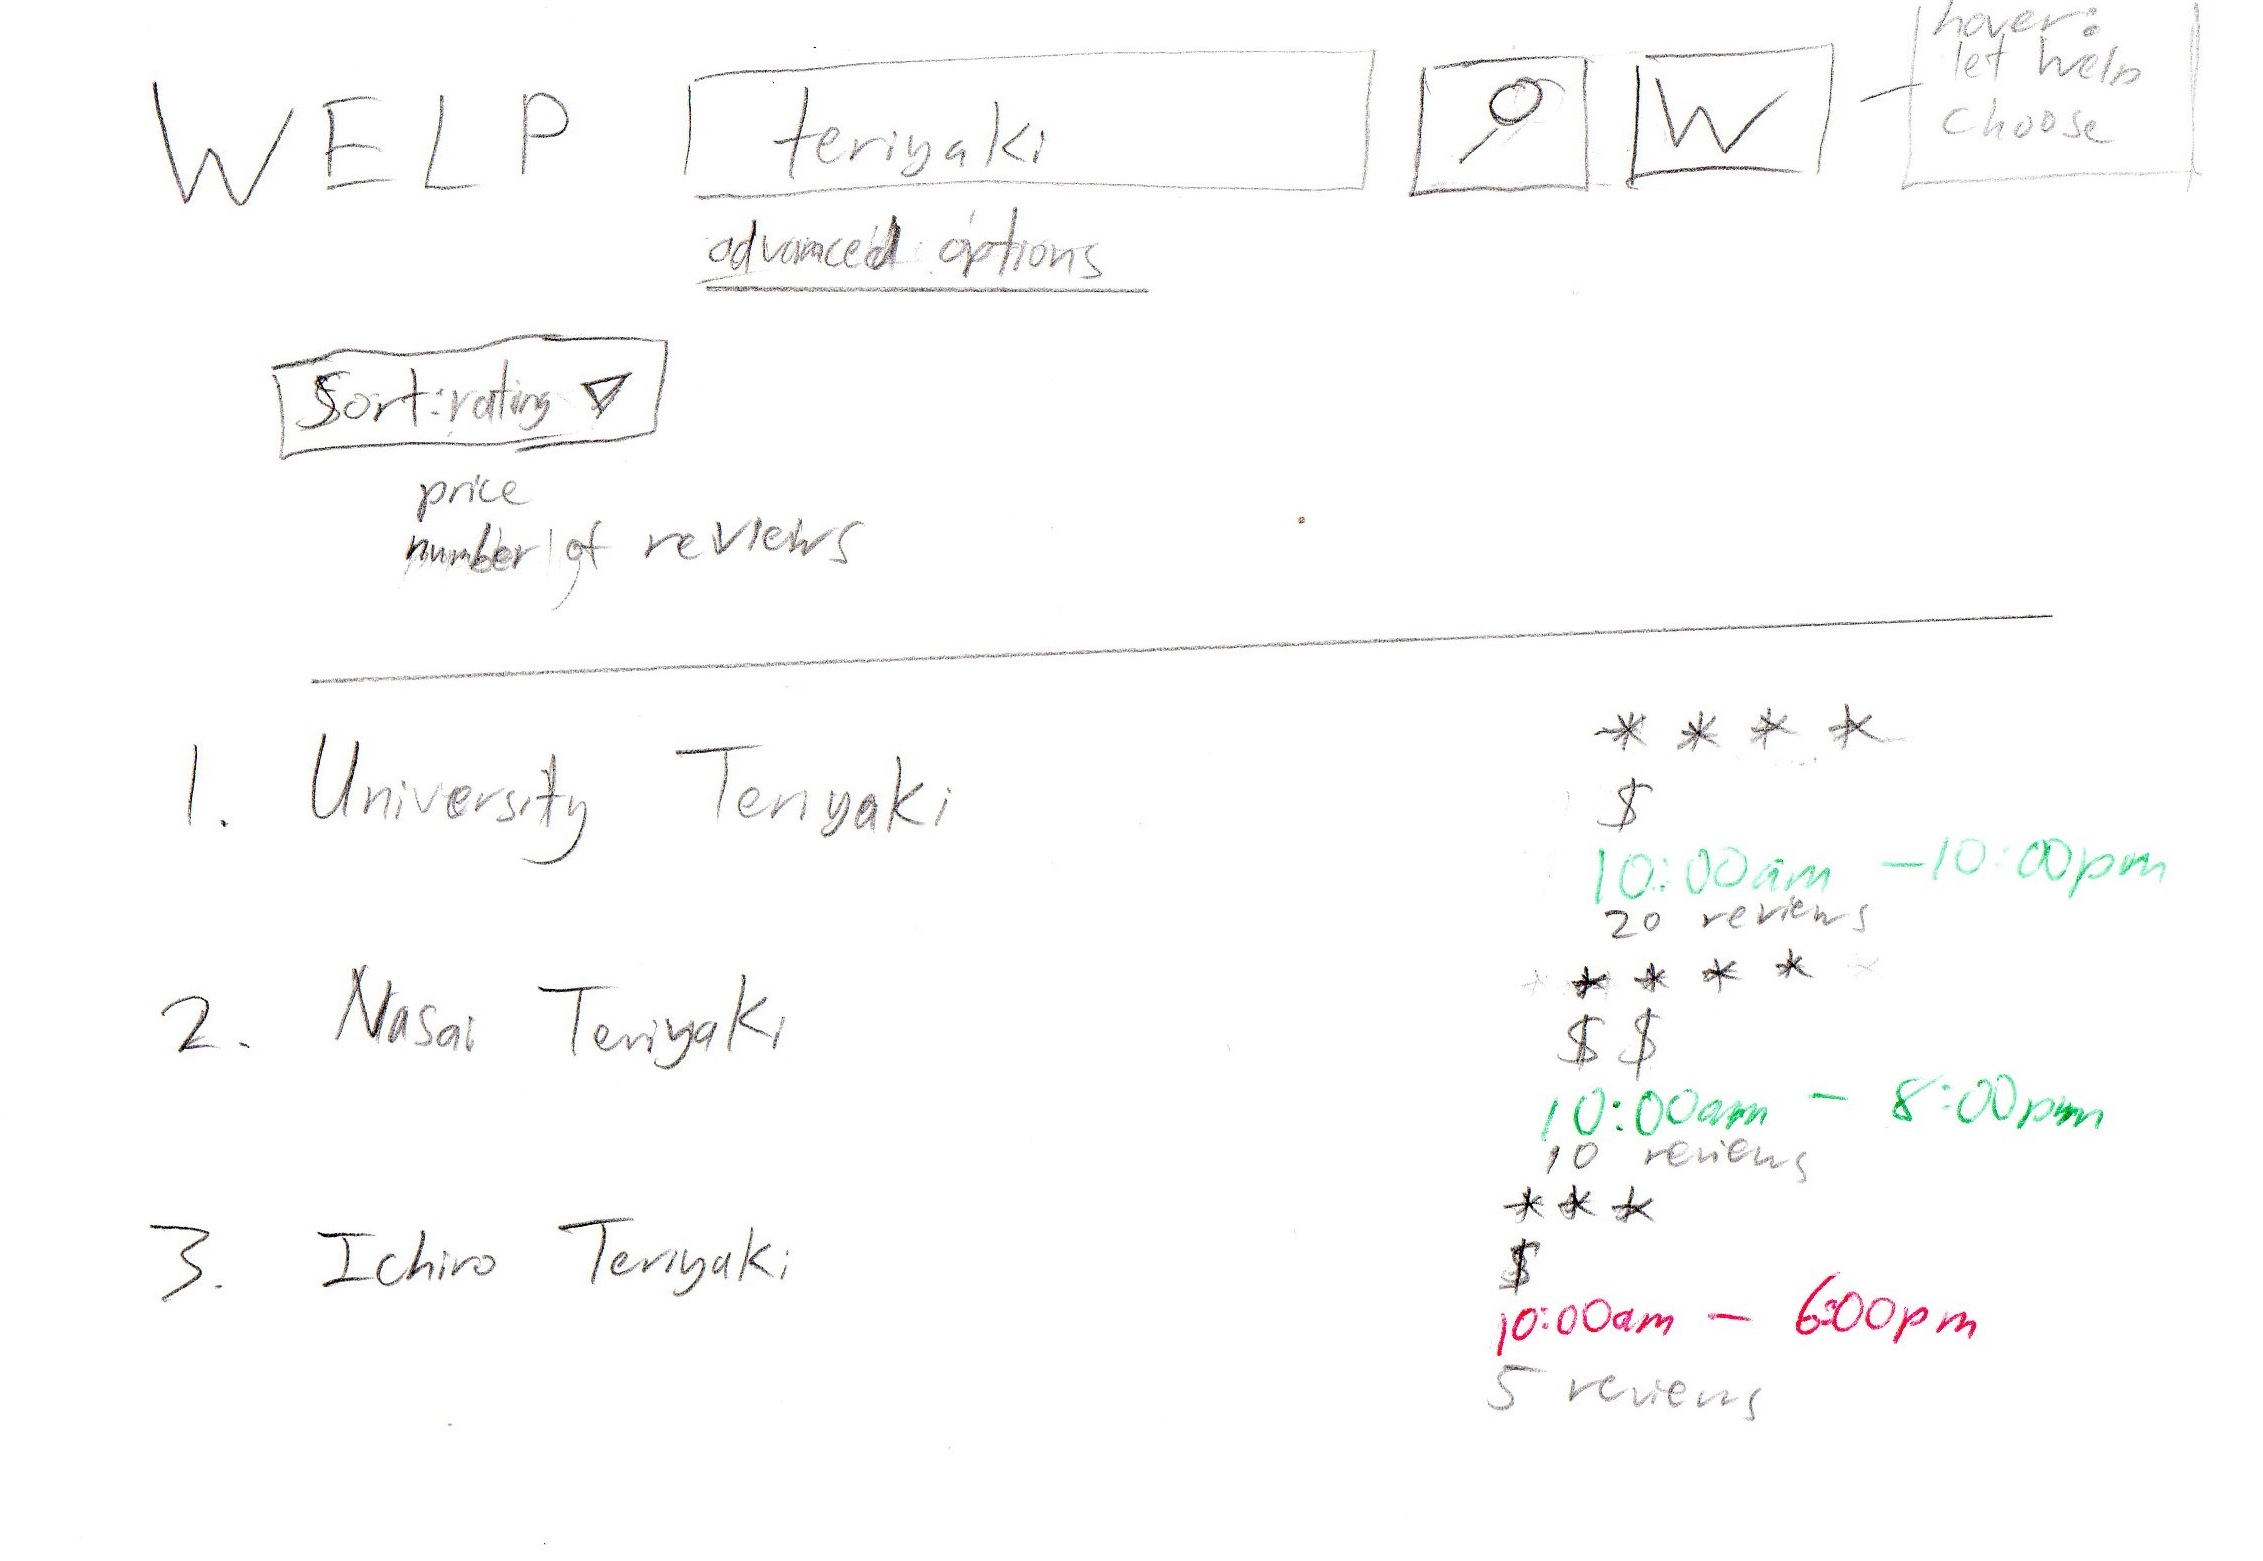 WELP teriyaki W hover:
let welp
choose
advanced options
Sort: rating
price
number of reviews
1. University Teriyaki
* * * *
$
10:00am - 10:00pm
20 reviews
2. Nasai Teriyaki
* * * *
$$
10:00am - 8:00pm
10 reviews
3. Ichiro Teriyaki
* * *
$
10:00am - 6:00pm
5 reviews